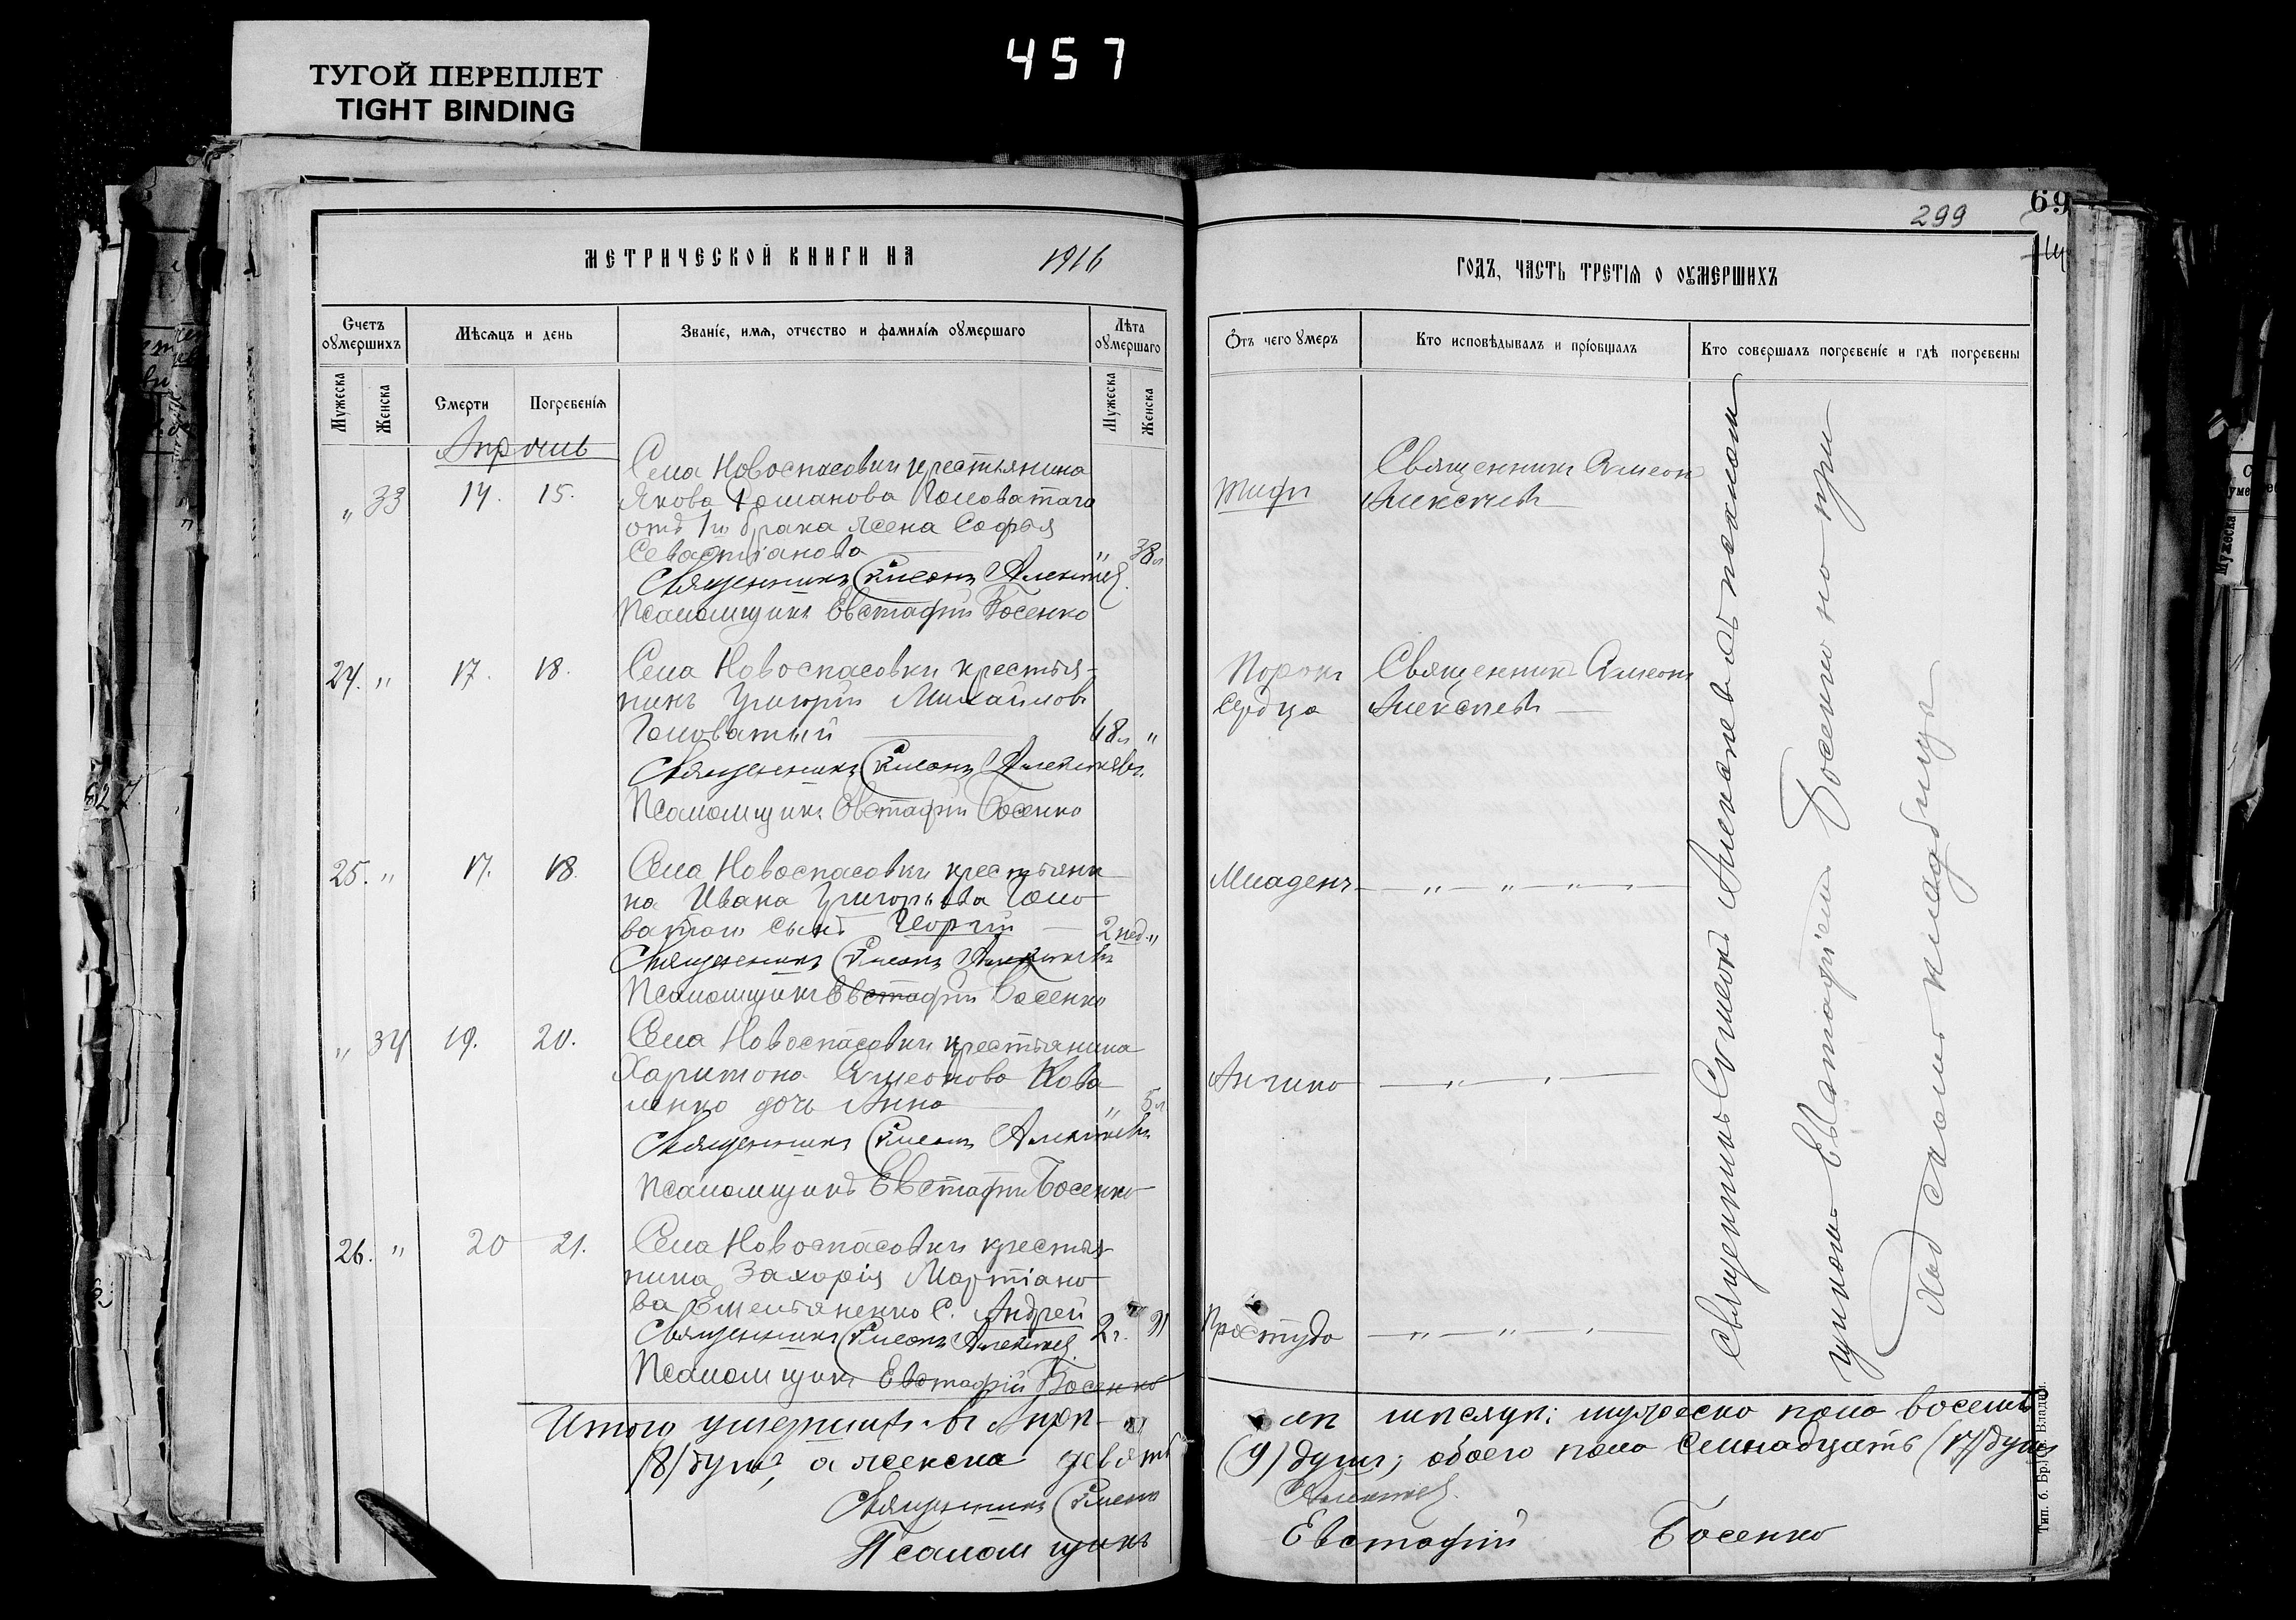 457
ТУГОЙ ПЕРЕПЛЕТ
TIGHT BINDING
69
299
МЕТРИЧЕСКОЙ КНИГИ НА 1916
ГОДЪ, ЧАСТЬ ТРЕТІЯ О ОУМЕРШИХЪ
Счетъ оумершихъ
Мѣсяцъ и день
Званіе, имя, отчество и фамилія оумершаго
Лѣта оумершаго
Ѿтъ чего умеръ
Кто исповѣдывалъ и пріобщалъ
Кто совершалъ погребеніе и гдѣ погребены
Мужеска
Женска
Смерти
Погребенія
Мужеска
Женска
Апрѣль
„ 33 14. 15.
Села Новоспасовки крестьянина
Якова Романова Головатаго
отъ 1го брака жена Софья
Севастіанова „ 38л
Священникъ Симеонъ Алексѣев
Псаломщикъ Евстафій Босенко
Тифъ
Священникъ Симеонъ
Алексѣевъ
24. „ 17. 18.
Села Новоспасовки крестья-
нинъ Григорій Михайловъ
Головатый 48л „
Священникъ Симеонъ Алексѣевъ.
Псаломщикъ Евстафій Босенко
Порокъ
сердца
Священникъ Симеонъ
Алексѣевъ
25. „ 17. 18.
Села Новоспасовки крестьяни
на Ивана Григорьева Голо-
ватаго сынъ Георгій 2 нед. „
Священникъ Симеонъ Алексѣевъ
Псаломщикъ Евстафій Босенко
Младенч. — „ — „ — „ —
„ 34 19. 20.
Села Новоспасовки крестьянина
Харитона Симеонова Кова
ленко дочь Анна „ 5л
Священникъ Симеонъ Алексѣевъ
Псаломщикъ Евстафій Босенко
Ангина — „ — „ —
26. „ 20 21.
Села Новоспасовки крестья-
нина Захарія Мартіано-
ва Емельяненко с. Андрей
2г. „
Священникъ Симеонъ Алексѣев.
Псаломщикъ Евстафій Босенко
Простуда — „ — „ — „
Священникъ Симеонъ Алексѣевъ съ псалом
щикомъ Евстафіемъ Босенко на при
ход скомъ кладбищѣ
Итого умершихъ въ Апрѣ- лѣ мѣсяцѣ: мужеска пола восемь
(8) душъ, а женска девять (9) душъ; обоего пола семнадцать (17) душъ
Священникъ Симеонъ Алексѣев.
Псаломщикъ Евстафій Босенко